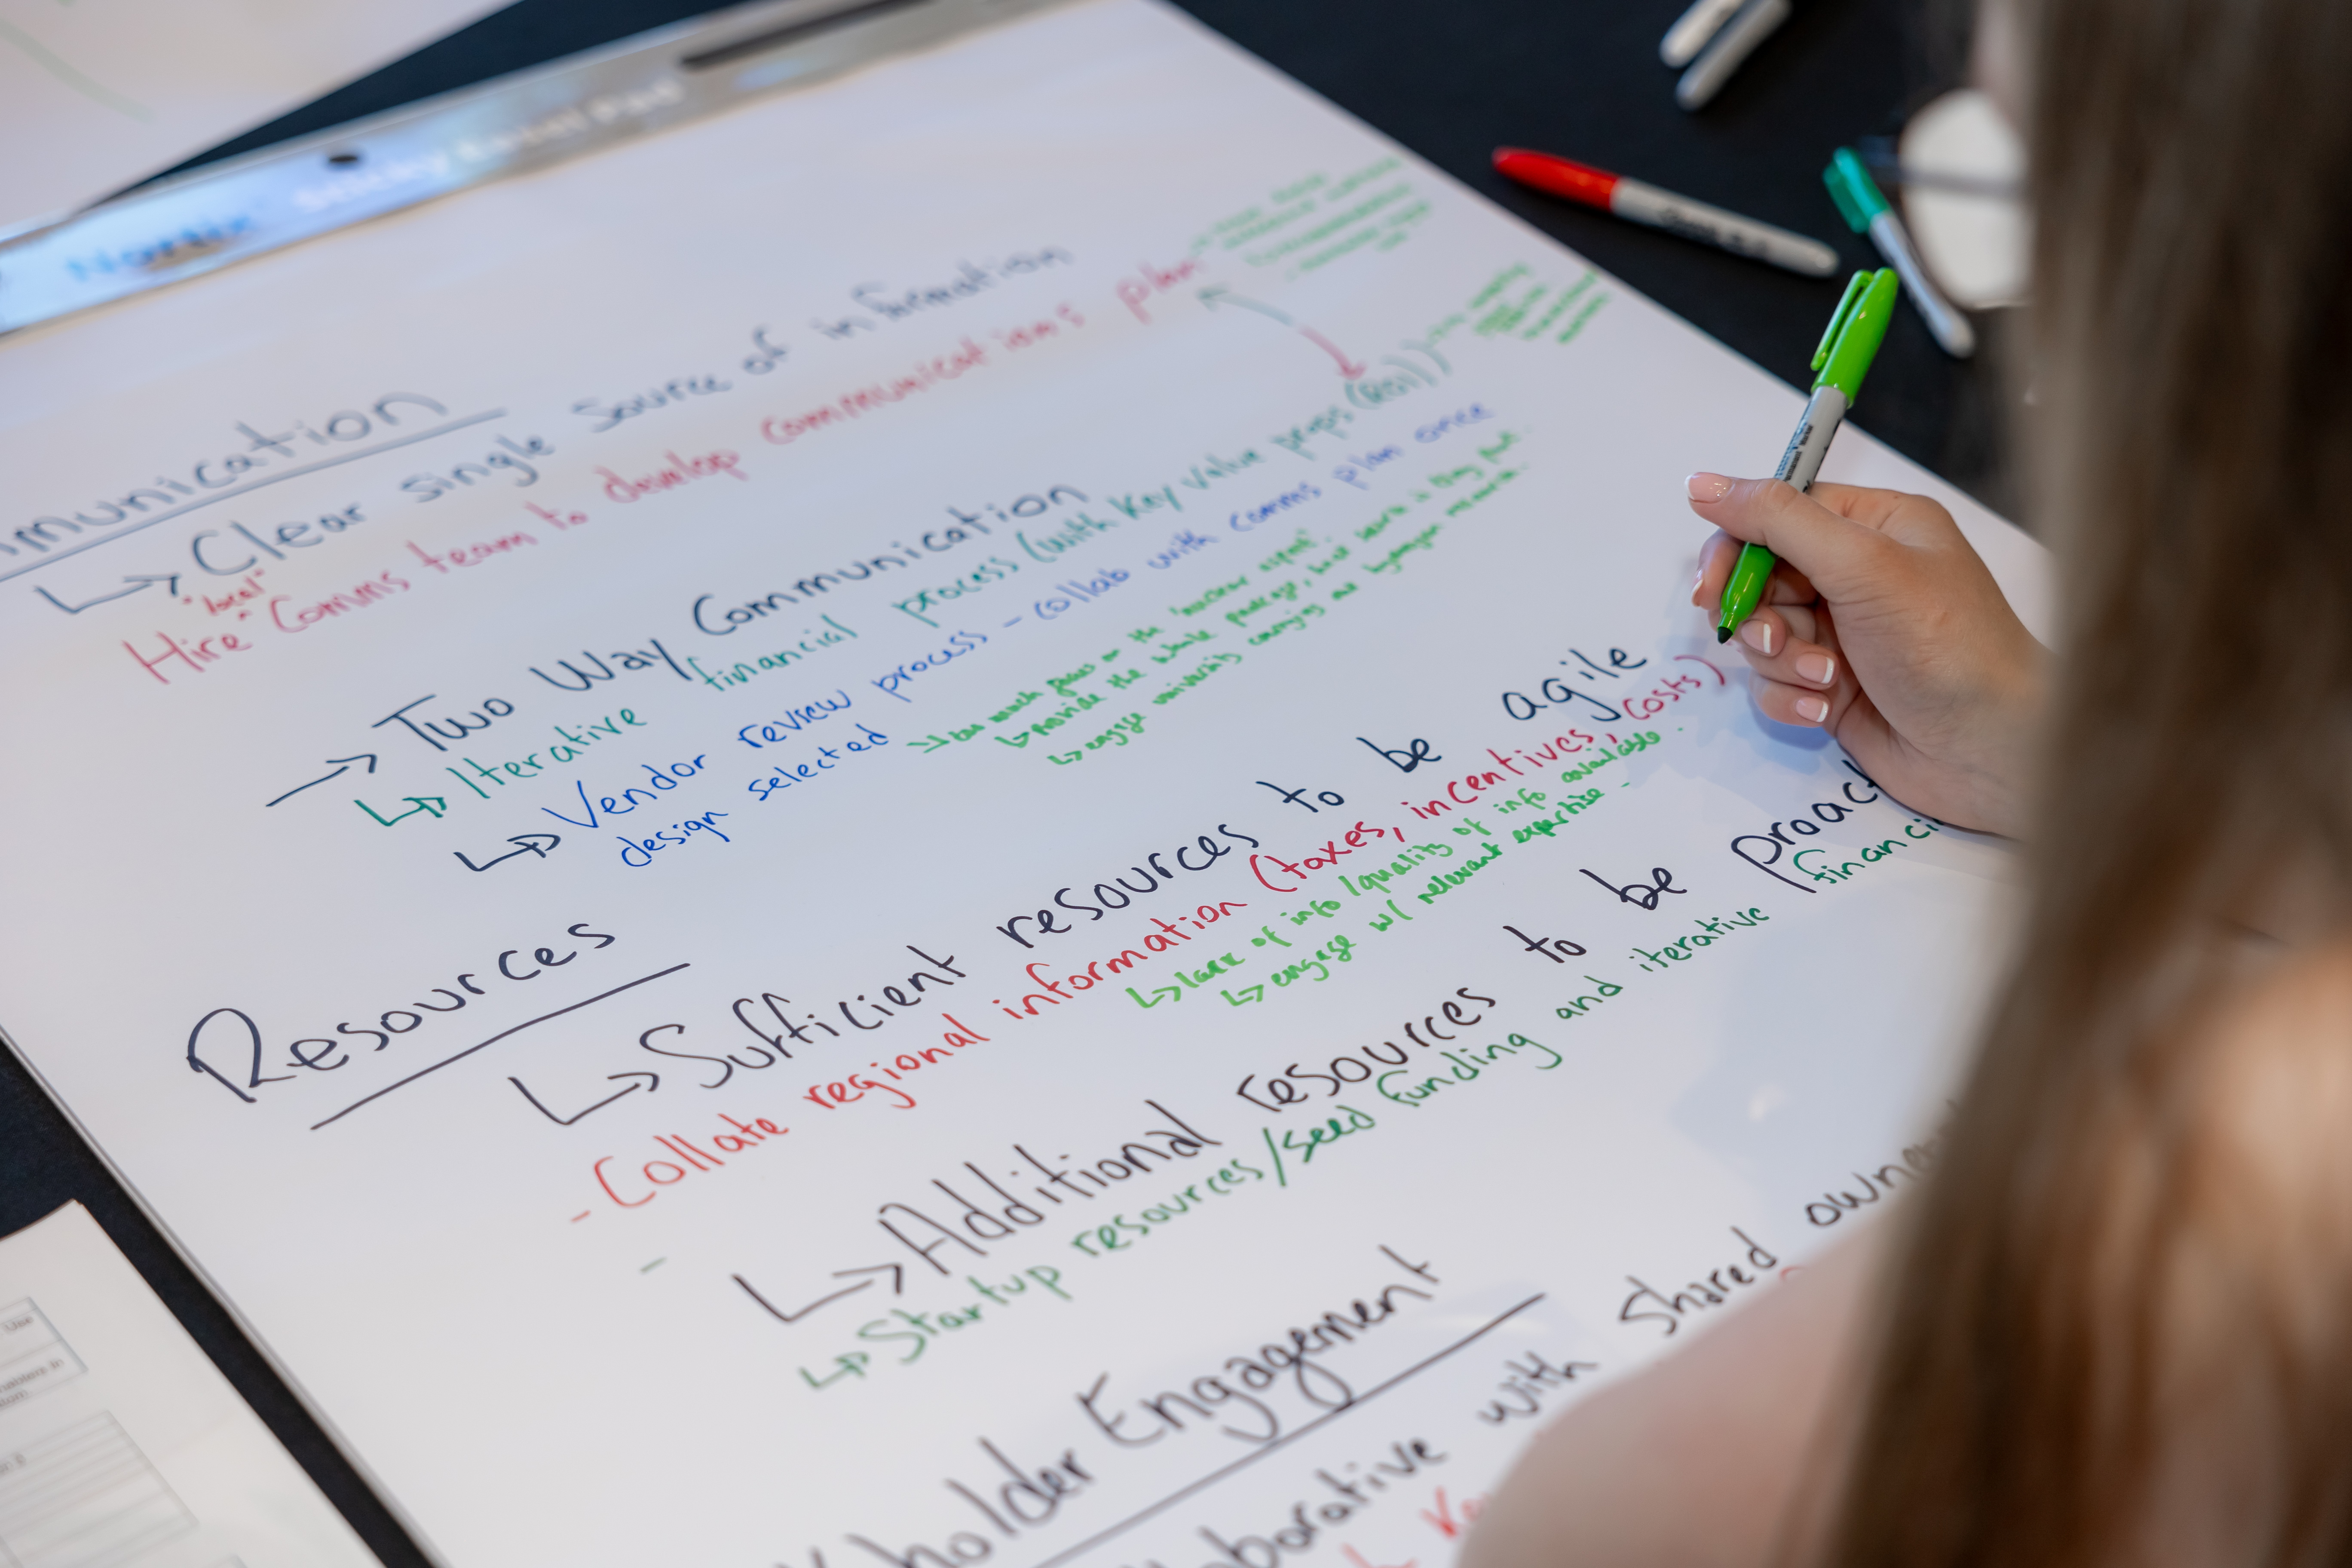 Sticky Easel Pad
munication
↳ Clear single source of information
"local"
Hire ^ Comms team to develop communications plan
→ Two Way Communication
↳ Iterative financial process (with key value props (ROI))
↳ Vendor review process - collab with comms plan once
design selected
↳ too much focus on the "nuclear aspect".
↳ provide the whole package,
↳ engage university
Resources
↳ Sufficient resources to be agile
- Collate regional information (taxes, incentives, costs)
↳ lack of info/quality of info available.
↳ engage w/ relevant expertise -
-
↳ Additional resources to be proact
↳ Startup resources/seed funding and iterative financi
holder Engagement
borative with shared owne